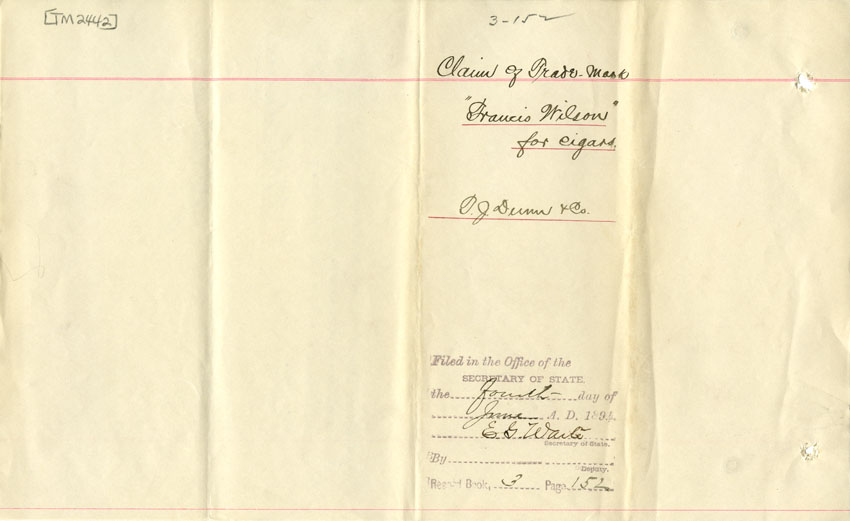 [TM2442]
3-152
Claim of Trade-Mark
"Francis Wilson"
for cigars.
P. J. Dunn & Co.
Filed in the Office of the
SECRETARY OF STATE.
the fourth day of
June A. D. 1894
E. G. Waite
Secretary of State.
By
Deputy.
Record Book, 3 Page 152